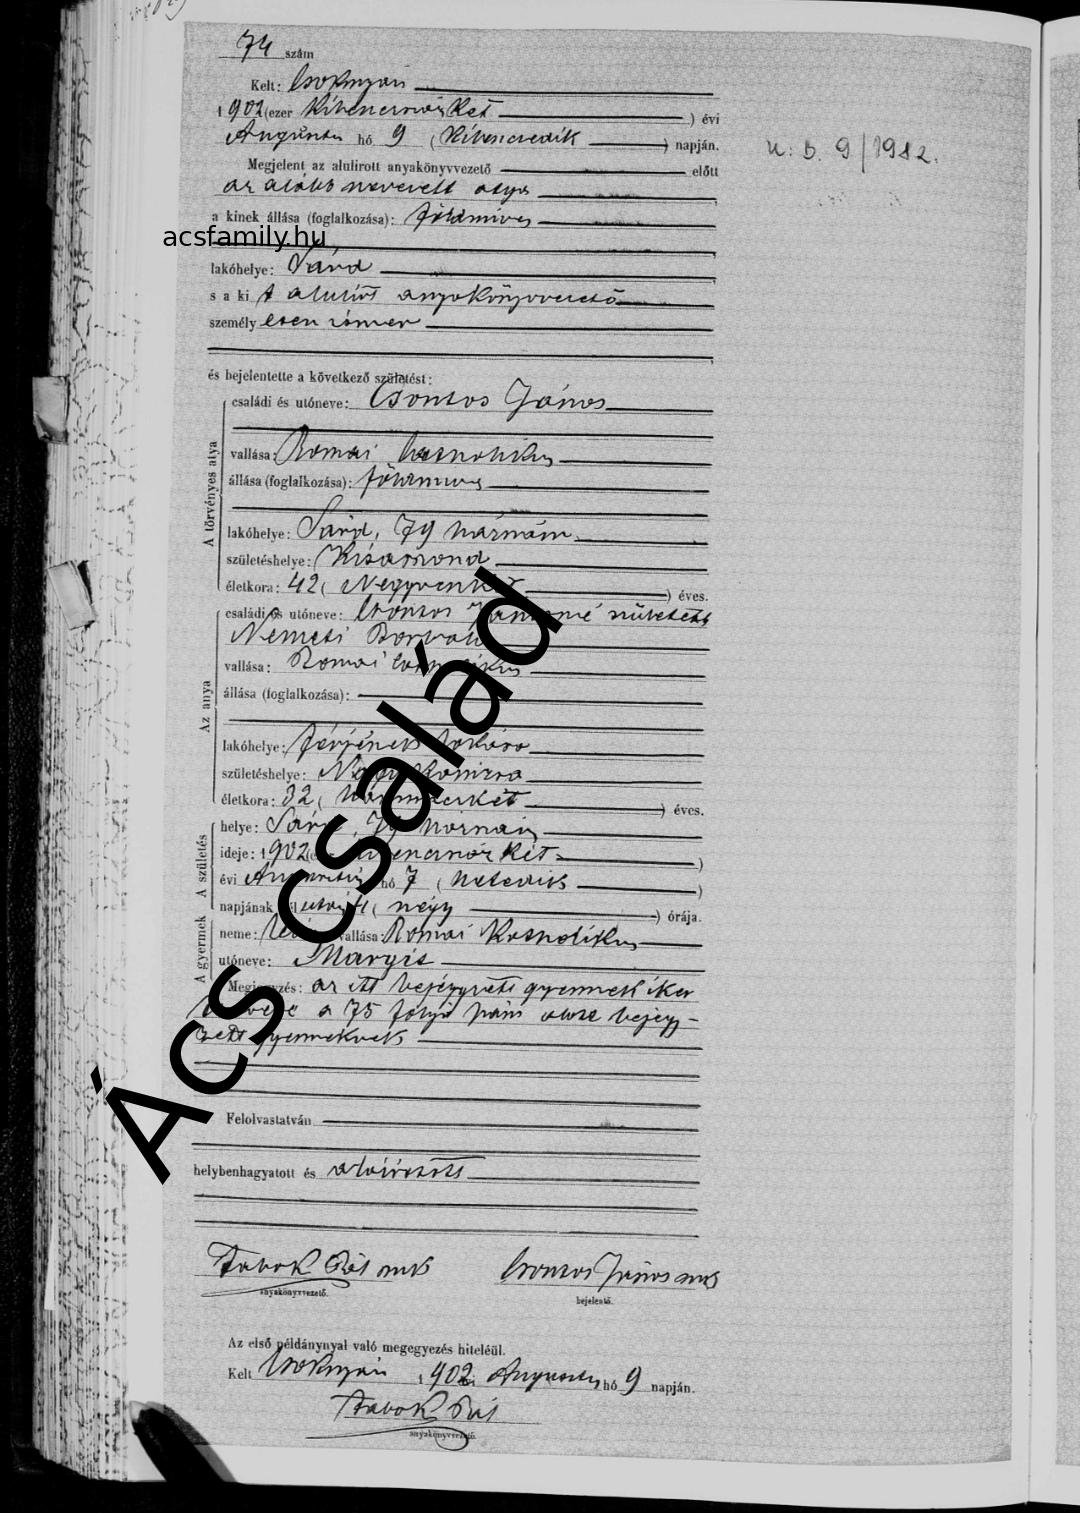 74 szám
Kelt: Csoknyán
1902 (ezer kilenczszáz két) évi
Augusztus hó 9 (kilenczedik) napján.
U: B. 9/1982.
Megjelent az alulirott anyakönyvvezető előtt
az alább nevezett atya
a kinek állása (foglalkozása): földmives
acsfamily.hu
lakóhelye: Sárd
s a kit alulirt anyakönyvvezető
személyesen ismer
és bejelentette a következő születést:
A törvényes atya
családi és utóneve: Csontos János
vallása: Romai katholikus
állása (foglalkozása): földmives
lakóhelye: Sárd, 79 házszám
születéshelye: Kisasszond
életkora: 42 (Negyvenkét) éves.
Az anya
családi és utóneve: Csontos Jánosné született
Nemesi Borbála
vallása: Romai katholikus
állása (foglalkozása):
lakóhelye: férjének lakása
születéshelye: Nagy Kanizsa
életkora: 32 (harminczkét) éves.
A születés
helye: Sárd, 79 házszám
ideje: 1902 (ezer kilenczszáz két)
évi Augusztus hó 7 (hetedik)
napjának dél után 4 (négy) órája.
A gyermek
neme: vallása: Romai Katholikus
utóneve: Margit
Megjegyzés: az itt bejegyzett gyermek iker
a 75 folyó szám alatt bejegy-
zett gyermeknek
Felolvastatván
helybenhagyatott és aláiratott
Tabok Pál mk
anyakönyvvezető.
Csontos János mk
bejelentő.
Az első példánynyal való megegyezés hiteléül.
Kelt Csoknyán 1902 évi Augusztus hó 9 napján.
Tabok Pál
anyakönyvvezető.
Ács család